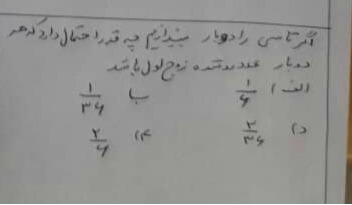 اگر تاسی را دوبار بیندازیم چه قدر احتمال دارد که هر
دوبار عدد رو شده زوج اول باشد
الف) ۱/۶ ب) ۱/۳۶
د) ۲/۳۶ ۴) ۲/۶